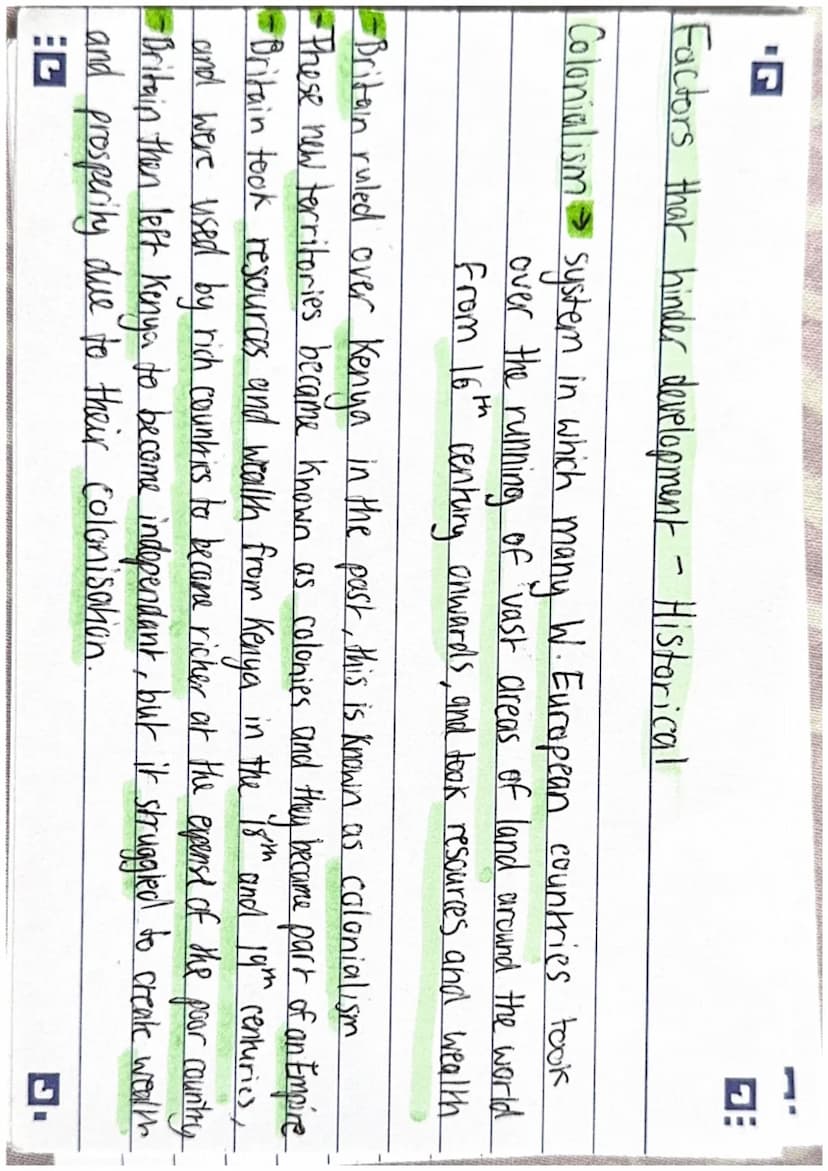 Factors that hinder development - Historical
Colonialism → system in which many W. European countries took
over the running of vast areas of land around the world
from 16th century onwards, and took resources and wealth
- Britain ruled over Kenya in the past, this is known as colonialism
- These new territories became known as colonies and they became part of an Empire
- Britain took resources and wealth from Kenya in the 18th and 19th centuries,
and were used by rich countries to became richer at the expense of the poor country
- Britain then left Kenya to become independant, but it struggled to create wealth
and prosperity due to their colonisation.